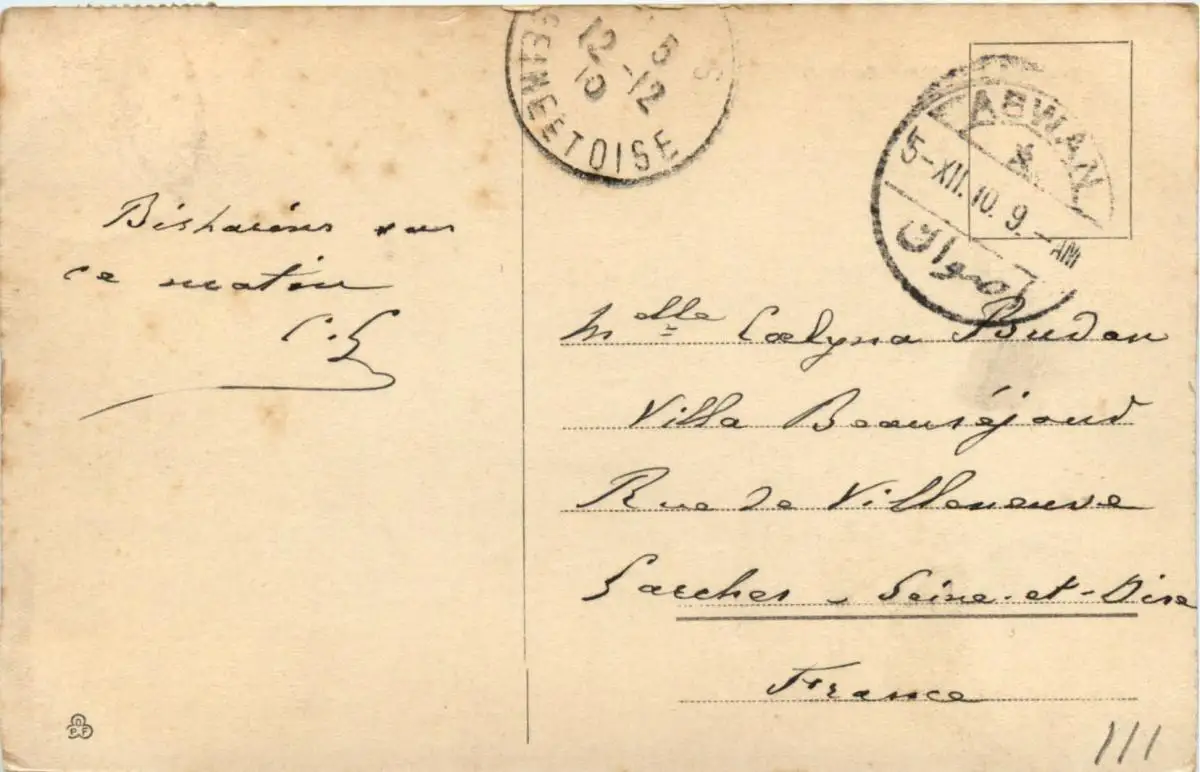 SEINE ET OISE
5
12-12
10
S
ASWAN
5-XII.10.9.-AM
اصوان
Bisharins vus
ce matin
C.G.
Mlle Coelyna Budan
Villa Beauséjour
Rue de Villeneuve
Garches - Seine-et-Oise
France
111